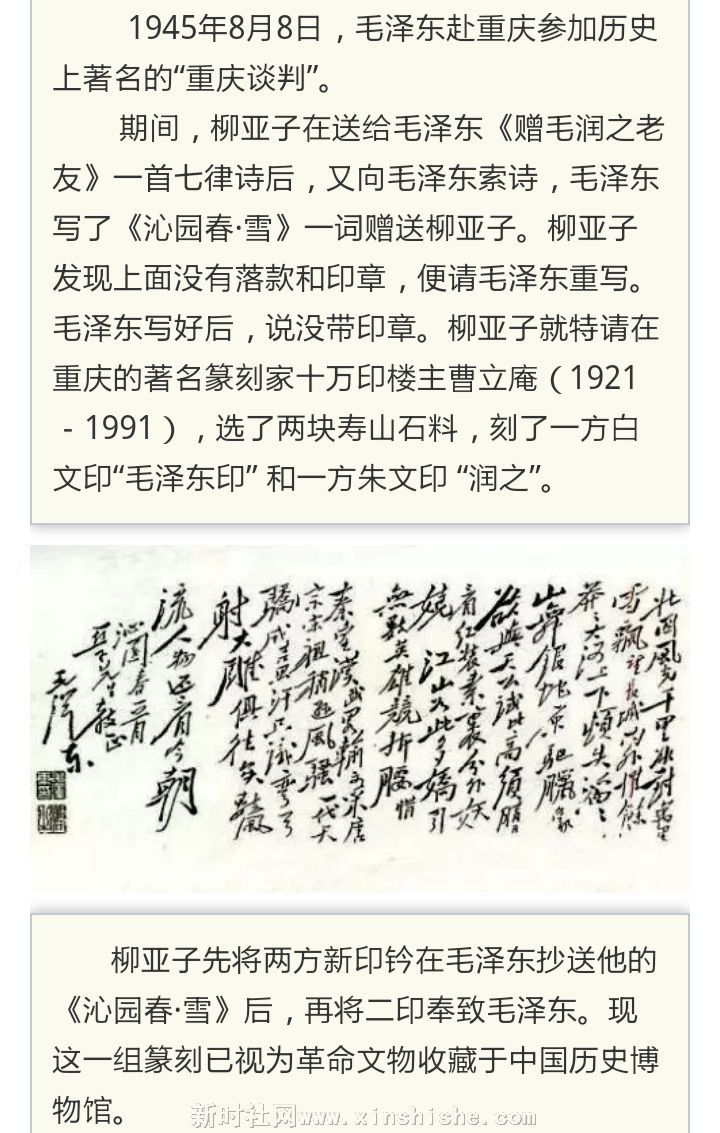 1945年8月8日，毛泽东赴重庆参加历史
上著名的“重庆谈判”。
期间，柳亚子在送给毛泽东《赠毛润之老
友》一首七律诗后，又向毛泽东索诗，毛泽东
写了《沁园春·雪》一词赠送柳亚子。柳亚子
发现上面没有落款和印章，便请毛泽东重写。
毛泽东写好后，说没带印章。柳亚子就特请在
重庆的著名篆刻家十万印楼主曹立庵（1921
－1991），选了两块寿山石料，刻了一方白
文印“毛泽东印” 和一方朱文印 “润之”。
北國風光千里冰封萬里
雪飄望長城內外惟餘
莽莽大河上下頓失滔滔
山舞銀蛇原馳臘象
欲與天公試比高須晴
看紅裝素裹分外妖
嬈 江山如此多嬌引
無數英雄競折腰惜
秦皇漢武略輸文采唐
宗宋祖稍遜風騷一代天
驕成吉思汗只識彎弓
射大雕俱往矣數風
流人物還看今朝
沁園春一首
亞子先生教正
毛澤東
柳亚子先将两方新印钤在毛泽东抄送他的
《沁园春·雪》后，再将二印奉致毛泽东。现
这一组篆刻已视为革命文物收藏于中国历史博
物馆。
新时社网www.xinshishe.com